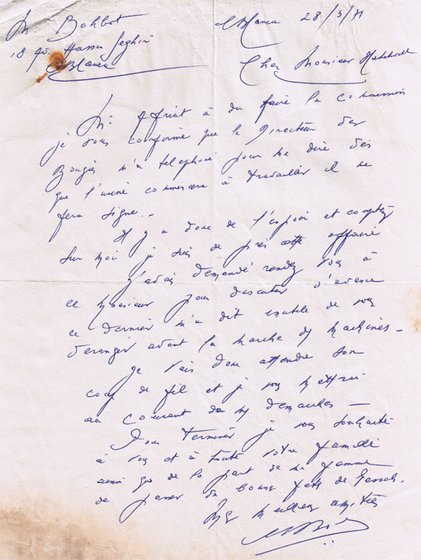 M. Bohbot
18 Av. Hassan Seghir
C/Blanca
C/Blanca 28/3/71
Cher Monsieur
Mr Afriat a dû faire la commission
je vous confirme que le Directeur des
Bougies m'a téléphoné pour me dire dès
que l'usine commencera à travailler il me
fera signe.-
Il y a donc de l'espoir et comptez
sur moi je suis de près cette affaire
J'avais demandé rendez vous à
ce Monsieur pour discuter d'avance
ce dernier m'a dit inutile de vous
déranger avant la marche des machines.-
Je vais donc attendre son
coup de fil et je vous mettrai
au courant de mes démarches -
Pour terminer je vous souhaite
à vous et à toute votre famille
ainsi que de la part de ma femme
de passer de bonnes fêtes de Pessah.
Mes meilleures amitiés